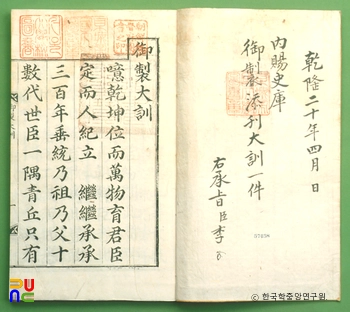 乾隆二十年四月 日
內賜史庫
御製添刊大訓一件
右承旨臣李
御製大訓
噫乾坤位而萬物育君臣
定而人紀立 繼繼承承
三百年垂統乃祖乃父十
数代世臣一隅青丘只有
© 한국학중앙연구원